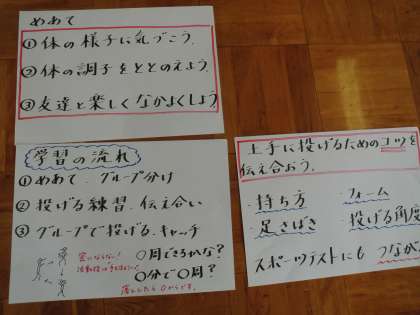 めあて
①体の様子に気づこう。
②体の調子をととのえよう。
③友達と楽しくなかよくしよう
学習の流れ
①めあて グループ分け
②投げる練習 伝え合い
③グループで投げる、キャッチ
〇周できるかな?
〇分で〇周?
落としたら0からです。
上手に投げるためのコツを
伝え合おう。
・持ち方
・フォーム
・足さばき
・投げる角度
スポーツテストにもつなが